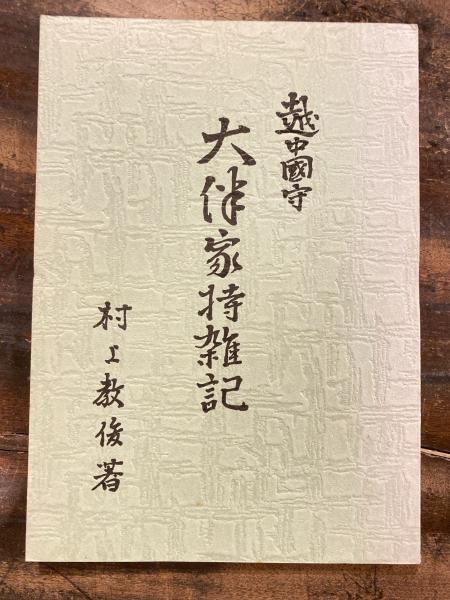 越中國守
大伴家持雑記
村上教俊著